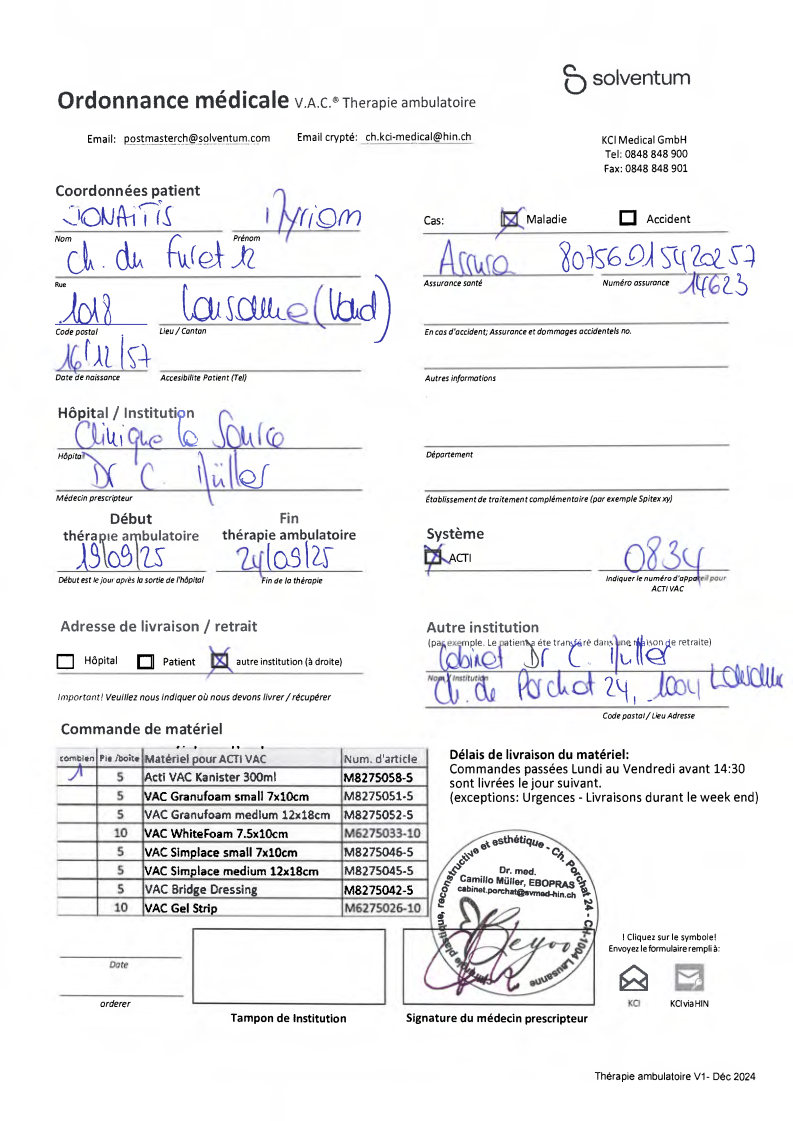 solventum
Ordonnance médicale V.A.C.® Therapie ambulatoire
Email: postmasterch@solventum.com Email crypté: ch.kci-medical@hin.ch
KCI Medical GmbH
Tel: 0848 848 900
Fax: 0848 848 901
Coordonnées patient
JONAITIS Myriam
Nom Prénom
ch. du Furet 12
Rue
1018 Lausanne (Vaud)
Code postal Lieu / Canton
16/12/57
Date de naissance Accesibilite Patient (Tel)
Cas: Maladie Accident
Assura 80756915420257
Assurance santé Numéro assurance 14623
En cas d'accident; Assurance et dommages accidentels no.
Autres informations
Hôpital / Institution
Clinique la Source
Hôpital
Dr C. Müller
Médecin prescripteur
Département
Établissement de traitement complémentaire (par exemple Spitex xy)
Début
thérapie ambulatoire
19/09/25
Début est le jour après la sortie de l'hôpital
Fin
thérapie ambulatoire
24/09/25
Fin de la thérapie
Système
ACTI 0834
Indiquer le numéro d'appareil pour
ACTI VAC
Adresse de livraison / retrait
Hôpital Patient autre institution (à droite)
Important! Veuillez nous indiquer où nous devons livrer / récupérer
Autre institution
(par exemple. Le patient a éte transféré dans une maison de retraite)
Cabinet Dr C. Müller
Nom / Institution
Ch. de Porchat 24, 1004 Lausanne
Code postal / Lieu Adresse
Commande de matériel
combien Pie /boîte Matériel pour ACTI VAC Num. d'article
1 5 Acti VAC Kanister 300ml M8275058-5
5 VAC Granufoam small 7x10cm M8275051-5
5 VAC Granufoam medium 12x18cm M8275052-5
10 VAC WhiteFoam 7.5x10cm M6275033-10
5 VAC Simplace small 7x10cm M8275046-5
5 VAC Simplace medium 12x18cm M8275045-5
5 VAC Bridge Dressing M8275042-5
10 VAC Gel Strip M6275026-10
Délais de livraison du matériel:
Commandes passées Lundi au Vendredi avant 14:30
sont livrées le jour suivant.
(exceptions: Urgences - Livraisons durant le week end)
plastique, reconstructive et esthétique - Ch. Porchat 24 - CH-1004 Lausanne
Dr. med.
Camillo Müller, EBOPRAS
cabinet.porchat@svmed-hin.ch
Date
orderer
Tampon de Institution
Signature du médecin prescripteur
! Cliquez sur le symbole!
Envoyez le formulaire rempli à:
KCI KCI via HIN
Thérapie ambulatoire V1- Déc 2024